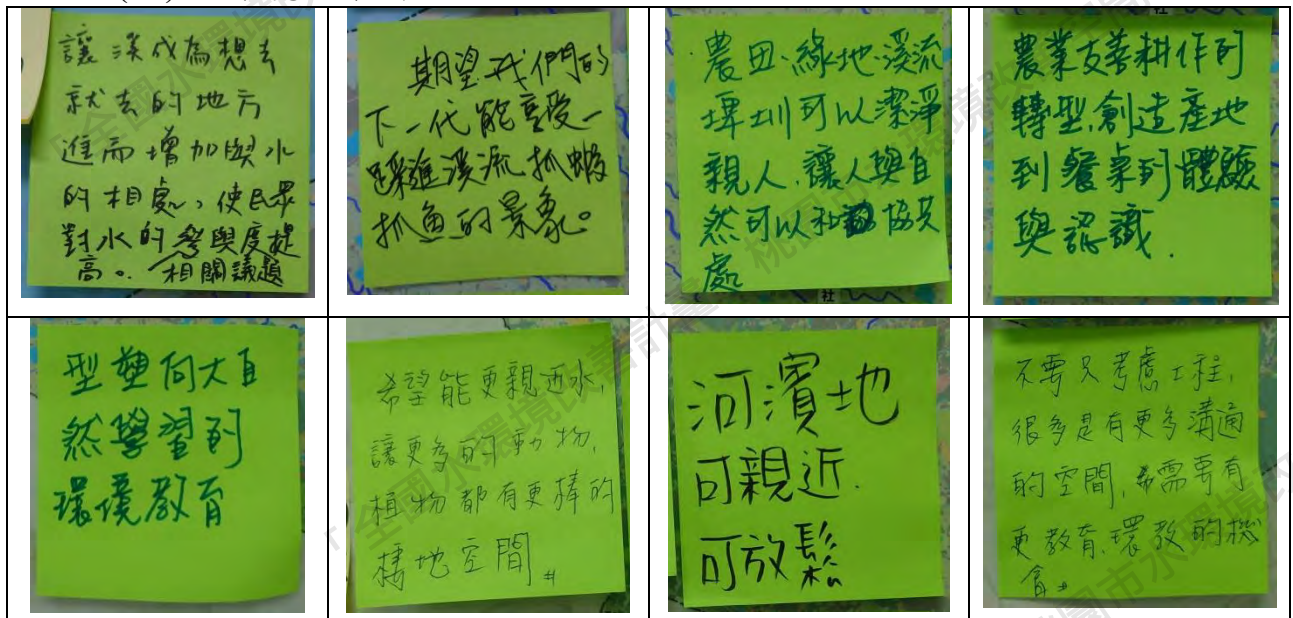 讓溪成為想去
就去的地方
進而增加與水
的相處，使民眾
對水的參與度提
高。相關議題
期望我們的
下一代能享受一
踩進溪流抓蝦
抓魚的景象。
農田.綠地.溪流
埤圳可以潔淨
親人.讓人與自
然可以和協共
處
農業友善耕作的
轉型,創造產地
到餐桌的體驗
與認識.
型塑向大自
然學習的
環境教育
希望能更親近水,
讓更多的動物,
植物都有更棒的
棲地空間
河濱地
可親近.
可放鬆
不要只考慮工程,
很多是有更多溝通
的空間,需要有
更教育.環教的機
會